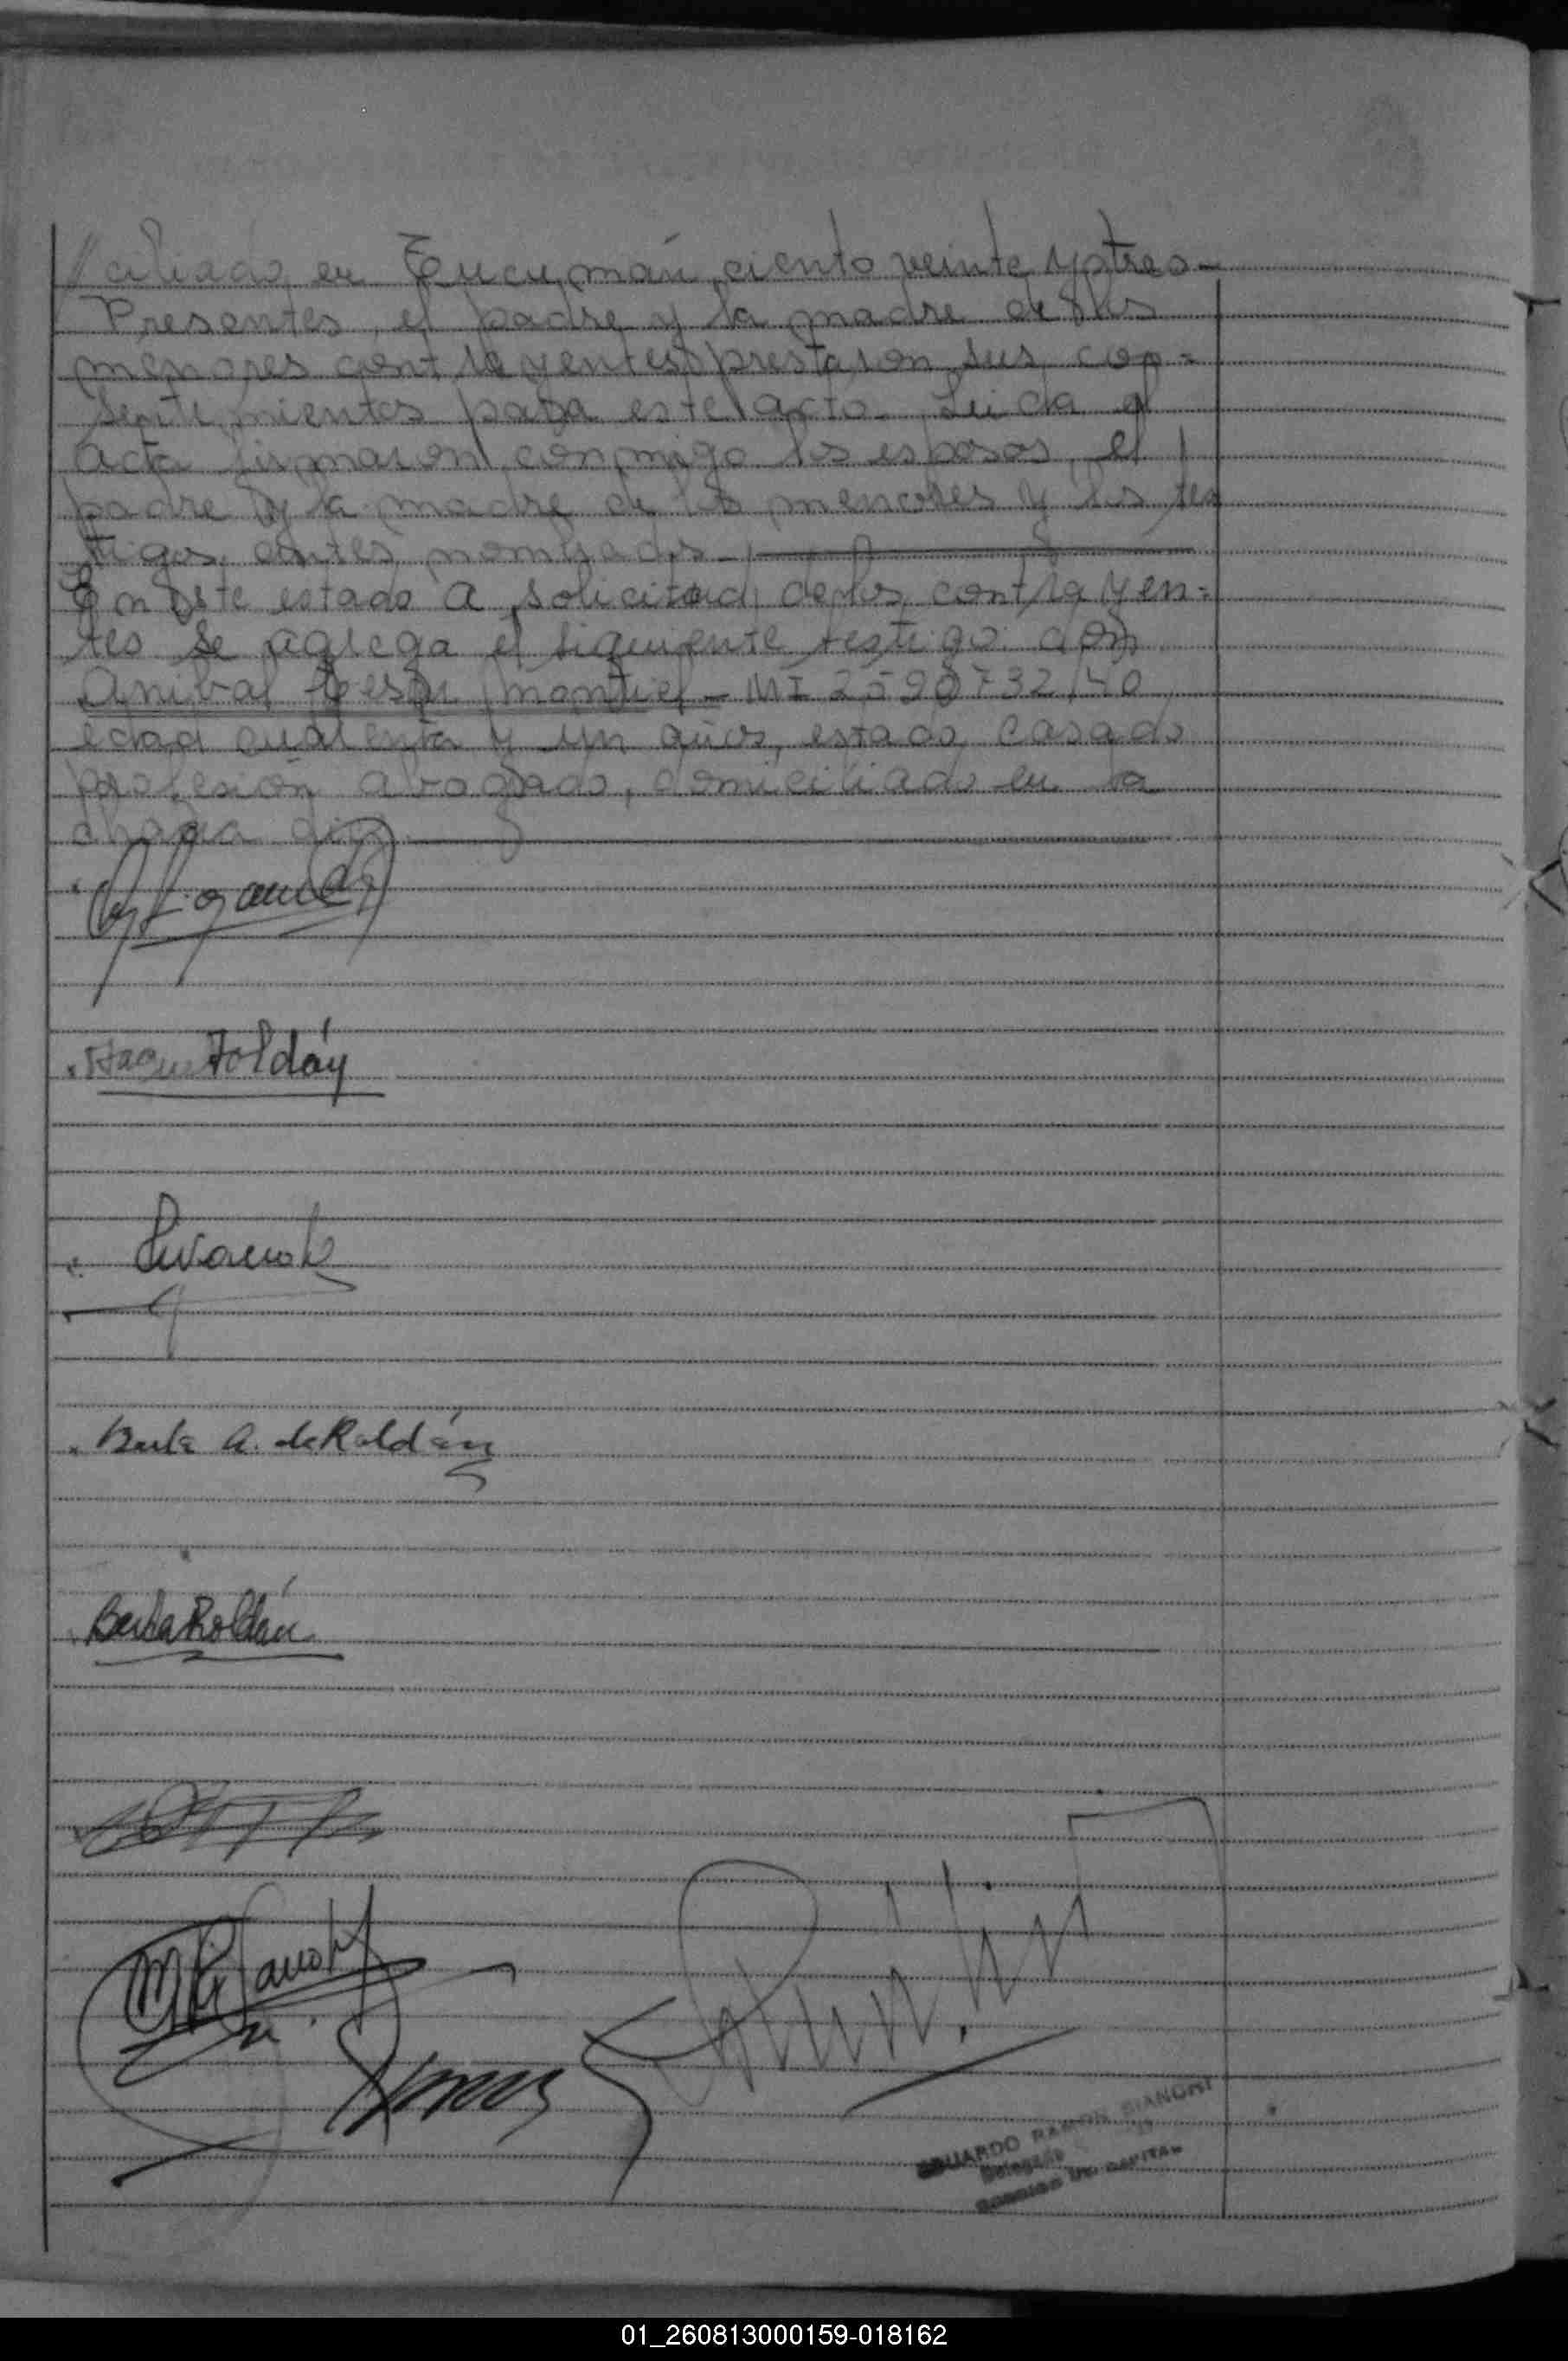 ciliado en Tucumán ciento veinte y tres -
Presentes, el padre y la madre de los
menores contrayentes prestaron sus con=
sentimientos para este acto. Leída el
Acta firmaron conmigo los esposos, el
padre y la madre de los menores y los tes
tigos antes nombrados -
En este estado a solicitud de los contrayen=
tes se agrega el siguiente testigo: don
Anibal Montiel - MI 2.598732/40
edad cuarenta y un años, estado casado
profesión abogado, domiciliado en la
Roldán
Berta A. de Roldán
Berta Roldán
EDUARDO RAMON BIANCHI
Delegado
CAPITAL
01_260813000159-018162